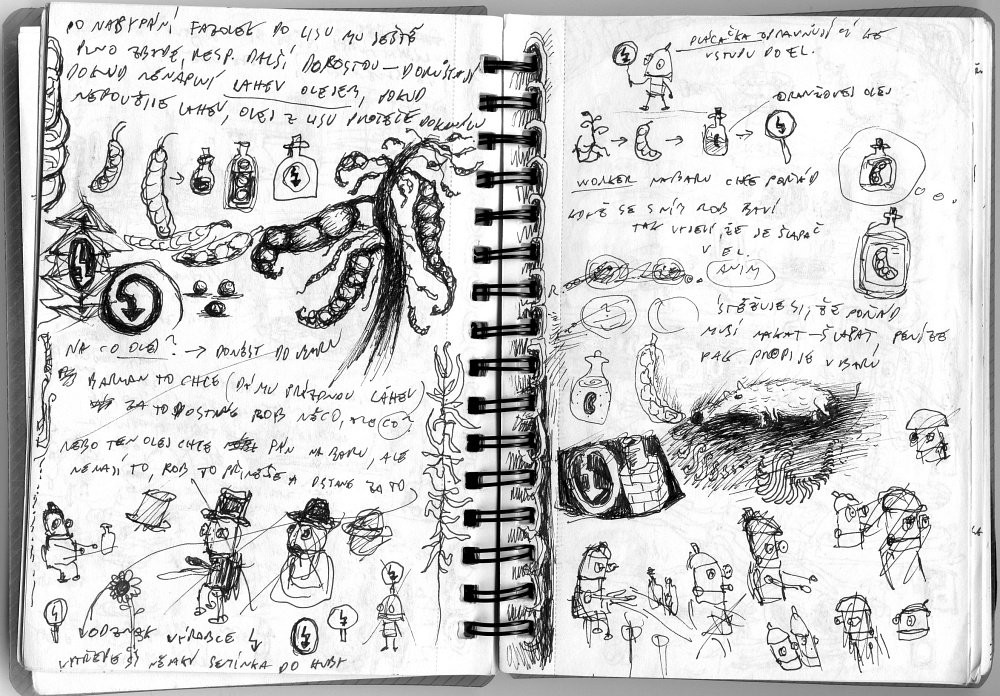 PO NASYPÁNÍ FAZOLEK DO LISU MU JEŠTĚ
PLNO ZBYDE, RESP. DALŠÍ DOROSTOU —
DOKUD NENAPLNÍ LAHEV OLEJEM, POKUD
NEPOUŽIJE LAHEV, OLEJ Z LISU PROTEČE
NA CO OLEJ? → DONÉST DO BARU
BARMAN TO CHCE (DÁ MU PRÁZDNOU LÁHEV)
ZA TO DOSTANE ROB NĚCO, ALE CO?
NEBO TEN OLEJ CHCE PÁN NA BARU, ALE
NEMAJÍ TO, ROB TO PŘINESE A DOSTANE ZA TO
ODZNAK VÝROBCE
SEMÍNKA DO HUBY
PLACAČKA OPRAVŇUJÍCÍ KE
VSTUPU DO EL.
ORANŽOVEJ OLEJ
WORKER NA BARU CHCE POŘÁD
KDYŽ SE S NÍM ROB BAVÍ
TAK VYJEVÍ, ŽE JE ŠLAPAČ
V EL.
ANIM
STĚŽUJE SI, ŽE POŘÁD
MUSÍ MAKAT – ŠLAPAT, PENÍZE
PAK PROPIJE V BARU